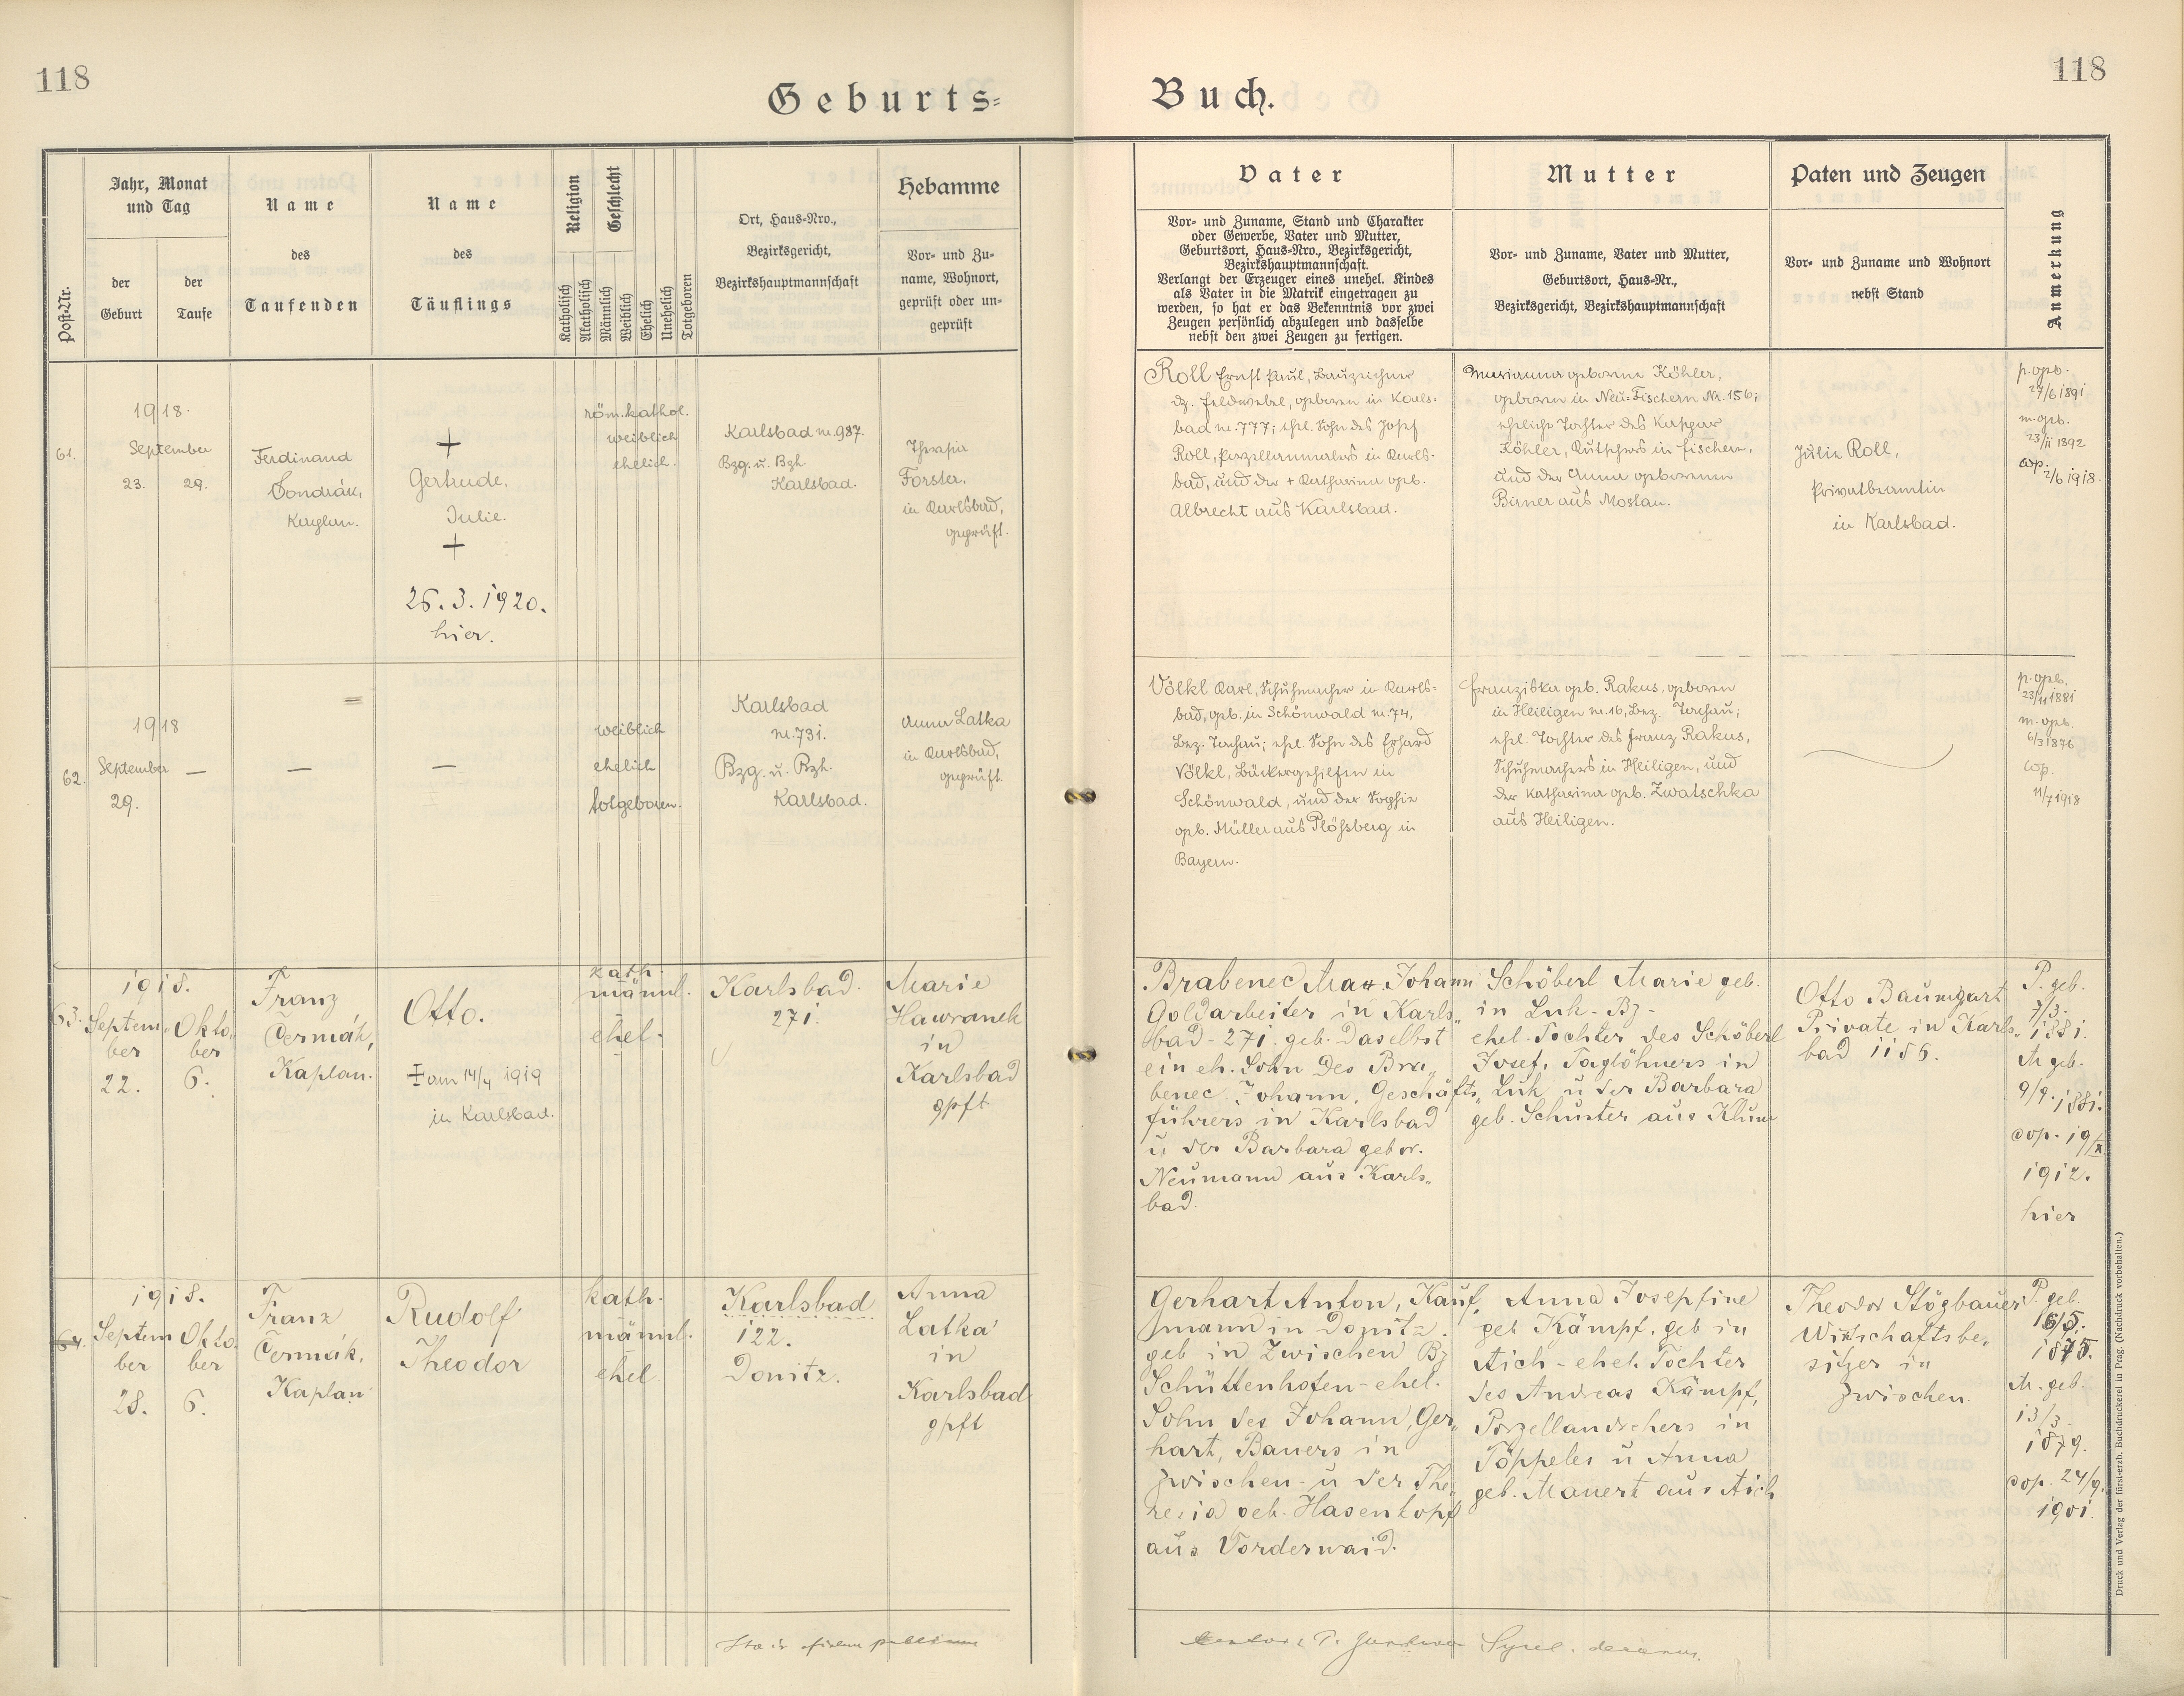 118
Geburts=
Buch.
118
Post-Nr.
Jahr, Monat
und Tag
der
Geburt
der
Taufe
Name
des
Taufenden
Name
des
Täuflings
Religion
Geschlecht
Katholisch
Akatholisch
Männlich
Weiblich
Ehelich
Unehelich
Totgeboren
Ort, Haus=Nro.,
Bezirksgericht,
Bezirkshauptmannschaft
Hebamme
Vor= und Zu=
name, Wohnort,
geprüft oder un=
geprüft
Vater
Vor= und Zuname, Stand und Charakter
oder Gewerbe, Vater und Mutter,
Geburtsort, Haus=Nro., Bezirksgericht,
Bezirkshauptmannschaft.
Verlangt der Erzeuger eines unehel. Kindes
als Vater in die Matrik eingetragen zu
werden, so hat er das Bekenntnis vor zwei
Zeugen persönlich abzulegen und dasselbe
nebst den zwei Zeugen zu fertigen.
Mutter
Vor= und Zuname, Vater und Mutter,
Geburtsort, Haus=Nr.,
Bezirksgericht, Bezirkshauptmannschaft
Paten und Zeugen
Vor= und Zuname und Wohnort
nebst Stand
Anmerkung
61.
1918.
September
23. 29.
Ferdinand
Kaplan.
+
Gertrude,
Julie.
+
26.3.1920.
hier.
röm.kathol.
weiblich
ehelich.
Karlsbad nr.987.
Bzg. u. Bzh.
Karlsbad.
Theresia
Forster,
in Karlsbad,
geprüft.
Roll Ernst Paul, Bauzeichner
dz. Feldwebel, geboren in Karls-
bad nr.777; ehel. Sohn des Josef
Roll, Porzellanmalers in Karls-
bad, und der + Katharina geb.
Albrecht aus Karlsbad.
Marianna geborene Köhler,
geboren in Neu=Fischern Nr.156;
eheliche Tochter des Kaspar
Köhler, Kutschers in Fischern,
und der Anna geborenen
Birner aus Mostau.
Julie Roll,
Privatbeamtin
in Karlsbad.
p. geb.
27/6 1891
m. geb.
23/11 1892
cop.
2/6 1918.
62.
1918
September —
29.
—
=
—
weiblich
ehelich
totgeboren.
Karlsbad
nr.731.
Bzg. u. Bzh.
Karlsbad.
Anna Latka
in Karlsbad,
geprüft.
Völkl Karl, Schuhmacher in Karls=
bad, geb. in Schönwald nr.74,
Bez. Tachau; ehel. Sohn des Erhard
Völkl, Bäckergehilfen in
Schönwald, und der Sophie
geb. Müller aus Plößberg in
Bayern.
Franziska geb. Rakus, geboren
in Heiligen nr.16, Bez. Tachau;
ehel. Tochter des Franz Rakus,
Schuhmachers in Heiligen, und
der Katharina geb. Zwatschka
aus Heiligen.
p. geb.
23/11 1881
m. geb.
6/3 1876
cop.
11/7 1918
63.
1918.
Septem- Okto-
ber ber
22. 6.
Franz
Čermák,
Kaplan.
Otto.
am 14/4 1919
in Karlsbad.
kath.
männl.
ehel.
Karlsbad.
271.
Marie
Hawranek
in
Karlsbad
gpft
Brabenec Max Johann
Goldarbeiter in Karls„
bad - 271. geb. Daselbst
ein eh. Sohn des Bra„
benec Johann, Geschäfts„
führers in Karlsbad
u der Barbara gebor.
Neumann aus Karls„
bad.
Schöberl Marie geb.
in Luk - Bz -
ehel. Tochter des Schöberl
Josef, Taglöhners in
Luk u der Barbara
geb. Schuster aus Klum
Otto Baumgart
Private in Karls„
bad 1155.
P. geb.
7/3.
1881.
M geb.
9/9. 1881.
cop. 19/X
1912.
hier
64.
1918.
Septem Okto-
ber ber
28. 6.
Franz
Čermák,
Kaplan
Rudolf
Theodor
kath.
männl.
ehel
Karlsbad
122.
Donitz.
Anna
Latka
in
Karlsbad
gpft
Gerhart Anton, Kauf„
mann in Donitz.
geb in Zwischen Bz
Schüttenhofen - ehel.
Sohn des Johann, Ger„
hart, Bauers in
Zwischen - u der The„
resia geb. Hasenkopf
aus Vorderwaid.
Anna Josepfine
geb Kämpf, geb in
Aich - ehel. Tochter
des Andreas Kämpf,
Porzellandrehers in
Töppeles u Anna
geb. Manert aus Aich
Theodor Stögbauer
Wirtschaftsbe„
sitzer in
Zwischen.
P. geb.
16/5.
1875.
M. geb.
13/3.
1879.
cop. 24/9.
1901.
Ita in fidem publicam
Druck und Verlag der fürst-erzb. Buchdruckerei in Prag. (Nachdruck vorbehalten.)